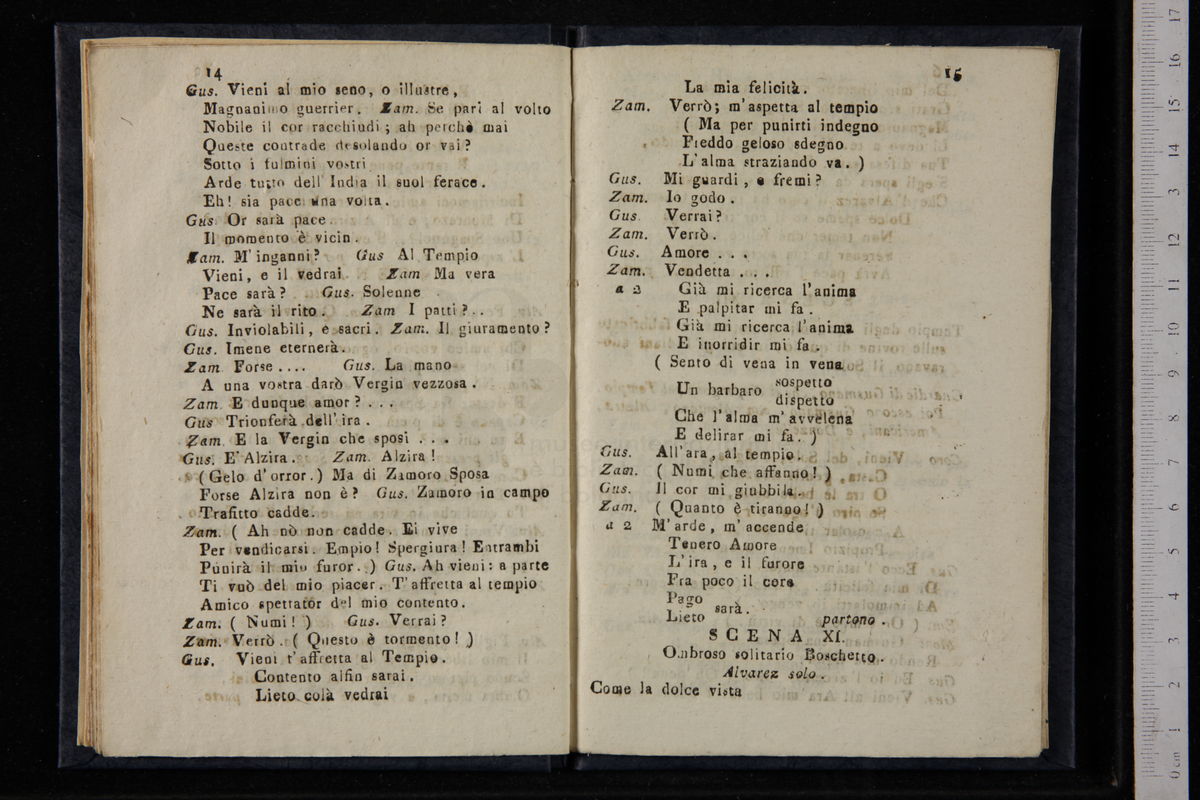 14
Gus. Vieni al mio seno, o illustre,
Magnanimo guerrier. Zam. Se pari al volto
Nobile il cor racchiudi; ah perchè mai
Queste contrade desolando or vai?
Sotto i fulmini vostri
Arde tutto dell' India il suol ferace.
Eh! sia pace una volta.
Gus Or sarà pace.
Il momento è vicin.
Zam. M' inganni? Gus Al Tempio
Vieni, e il vedrai. Zam Ma vera
Pace sarà? Gus. Solenne
Ne sarà il rito. Zam I patti?..
Gus. Inviolabili, e sacri. Zam. Il giuramento?
Gus. Imene eternerà.
Zam Forse.... Gus. La mano
A una vostra darò Vergin vezzosa.
Zam E dunque amor?...
Gus Trionferà dell' ira.
Zam. E la Vergin che sposi...
Gus. E' Alzira. Zam. Alzira!
(Gelo d' orror.) Ma di Zamoro Sposa
Forse Alzira non è? Gus. Zamoro in campo
Trafitto cadde.
Zam. ( Ah nò non cadde. Ei vive
Per vendicarsi. Empio! Spergiura! Entrambi
Punirà il mio furor.) Gus. Ah vieni: a parte
Ti vuò del mio piacer. T' affretta al tempio
Amico spettatór del mio contento.
Zam. ( Numi! ) Gus. Verrai?
Zam. Verrò. ( Questo è tormento! )
Gus. Vieni t' affretta al Tempio.
Contento alfin sarai.
Lieto colà vedrai
15
La mia felicità.
Zam. Verrò; m' aspetta al tempio
( Ma per punirti indegno
Fieddo geloso sdegno
L' alma straziando va. )
Gus. Mi guardi, e fremi?
Zam. Io godo.
Gus. Verrai?
Zam. Verrò.
Gus. Amore...
Zam. Vendetta...
a 2 Già mi ricerca l' anima
E palpitar mi fa.
Già mi ricerca l' anima
E inorridir mi fa.
( Sento di vena in vena
Un barbaro sospetto
dispetto
Che l' alma m' avvelena
E delirar mi fa. )
Gus. All' ara, al tempio.
Zam. ( Numi che affanno! )
Gus. Il cor mi giubbila.
Zam. ( Quanto è tiranno! )
a 2 M' arde, m' accende
Tenero Amore
L' ira, e il furore
Fra poco il core
Pago
Lieto sarà. partono.
SCENA XI.
Ombroso solitario Boschetto.
Alvarez solo.
Come la dolce vista
0 cm 1 2 3 4 5 6 7 8 9 10 11 12 13 14 15 16 17